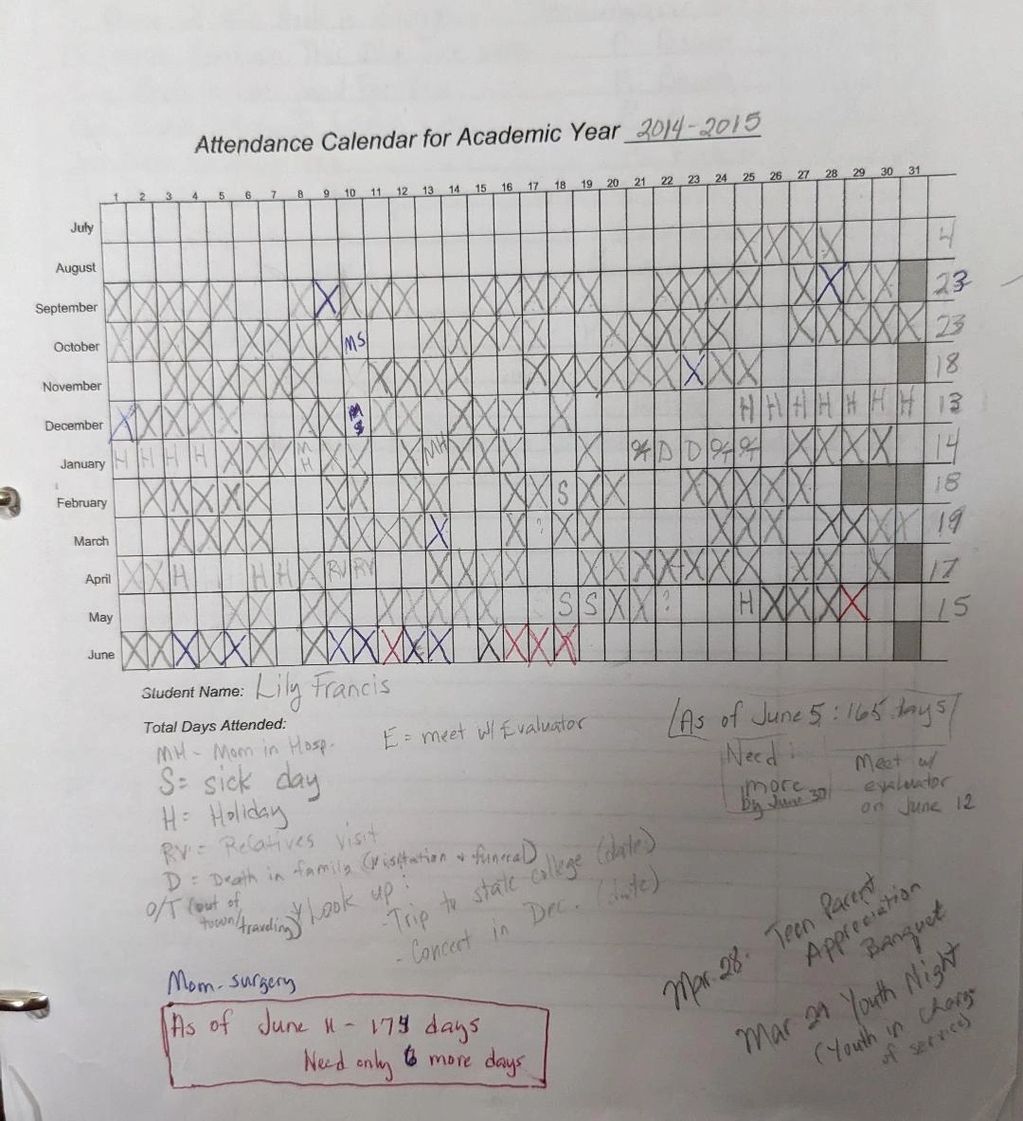 Attendance Calendar for Academic Year 2014-2015
1 2 3 4 5 6 7 8 9 10 11 12 13 14 15 16 17 18 19 20 21 22 23 24 25 26 27 28 29 30 31
July
August X X X X 4
September X X X X X X X X X X X X X X X X X X X X X X X 23
October X X X X X X X X MS X X X X X X X X X X X X X X X 23
November X X X X X X X X X X X X X X X X X X X X 18
December X X X X X X X MS X X X X X X H H H H H H H 13
January H H H H X X X MH X X X MH X X X X O/T D D O/T O/T X X X X 14
February X X X X X X X X X X X S X X X X X X X 18
March X X X X X X X X X X ? X X X X X X X X X 19
April X X H H H X RV RV X X X X X X X X X X X X X X 17
May X X X X X X X X X S S X X ? H X X X X 15
June X X X X X X X X X X X X X X X X
Student Name: Lily Francis
Total Days Attended:
MH - Mom in Hosp.
E = meet w/ Evaluator
S= sick day
H= Holiday
RV = Relatives visit
D = Death in family (visitation & funeral)
O/T (out of town/traveling)
Look up:
- Trip to state college (date)
- Concert in Dec. (date)
As of June 5: 165 days
Need :
more
by June 30
Meet w/
evaluator
on June 12
Mar. 28. Teen Parent
Appreciation
Banquet
Mar 29 Youth Night
(Youth in charge
of service)
Mom - surgery
As of June 11 - 174 days
Need only 6 more days